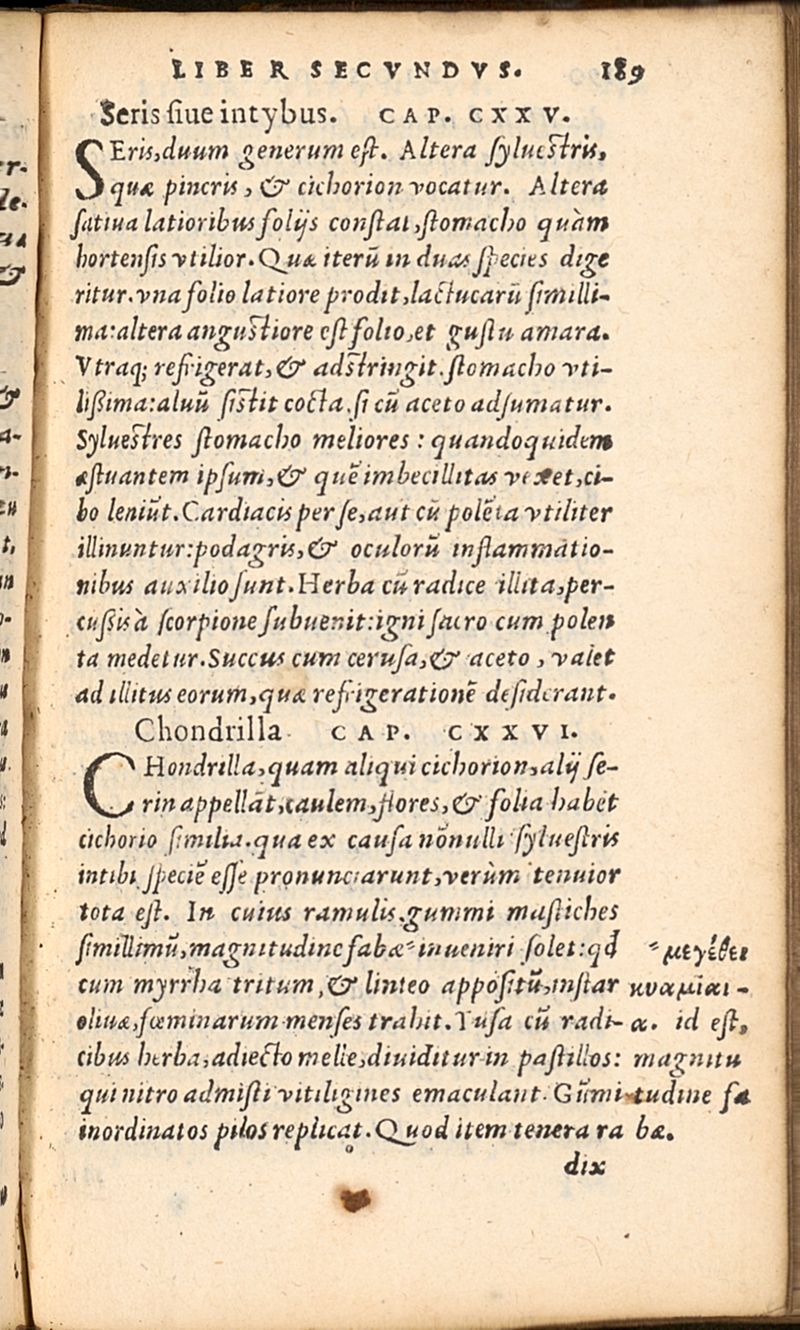 LIBER SECVNDVS. 189
Seris siue intybus. CAP. CXXV.
SEris, duum generum est. Altera syluestris,
quæ pincris, & cichorion vocatur. Altera
satiua latioribus folijs constat, stomacho quàm
hortensis vtilior. Quæ iterũ in duas species dige
ritur. vna folio latiore prodit, lactucarũ simılli-
ma: altera angustiore est folio, et gustu amara.
Vtraq; refrigerat, & adstringit. stomacho vti-
lißima: aluũ sistit cocta, si cũ aceto adsumatur.
Syluestres stomacho meliores: quandoquidem
æstuantem ipsum, & quẽ imbecillitas vexet, ci-
bo leniũt. Cardiacis per se, aut cũ polẽta vtiliter
illinuntur: podagris, & oculorũ inflammatio-
nibus auxilio sunt. Herba cũ radice illita, per-
cußis à scorpione subuenit: igni sacro cum polen
ta medetur. Succus cum cerusa, & aceto, valet
ad illitus eorum, quæ refrigerationẽ desiderant.
Chondrilla CAP. CXXVI.
CHondrilla, quam aliqui cichorion, alij se-
rin appellãt, caulem, flores, & folia habet
cichorio similia. qua ex causa nõnulli syluestris
intibi speciẽ esse pronunciarunt, verùm tenuior
tota est. In cuius ramulis, gummi mastiches
simillimũ, magnitudine fabæ " inueniri solet: qđ
cum myrrha tritum, & linteo appositũ, instar
oliuæ, fœminarum menses trahit. Tusa cũ radi-
cibus herba, adiecto melle, diuiditur in pastillos:
qui nitro admisti vitiligines emaculant. Gũmi
inordinatos pilos replicat. Quod item tenera ra
dix
" μεγέθει
κυαμίαι-
α. id est,
magnitu
tudine fa
bæ.